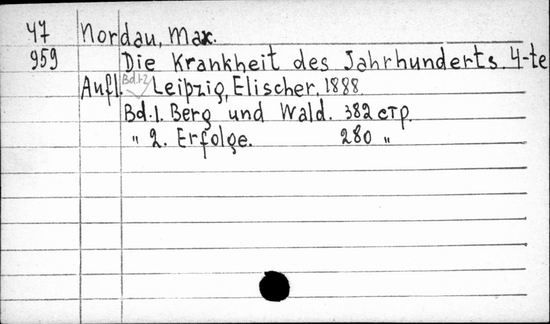 47 Nordau, Max.
959 Die Krankheit des Jahrhunderts. 4-te
Aufl. Bd.1-2 Leipzig, Elischer, 1888.
Bd.1. Berg und Wald. 382 стр.
" 2. Erfolge. 280 "